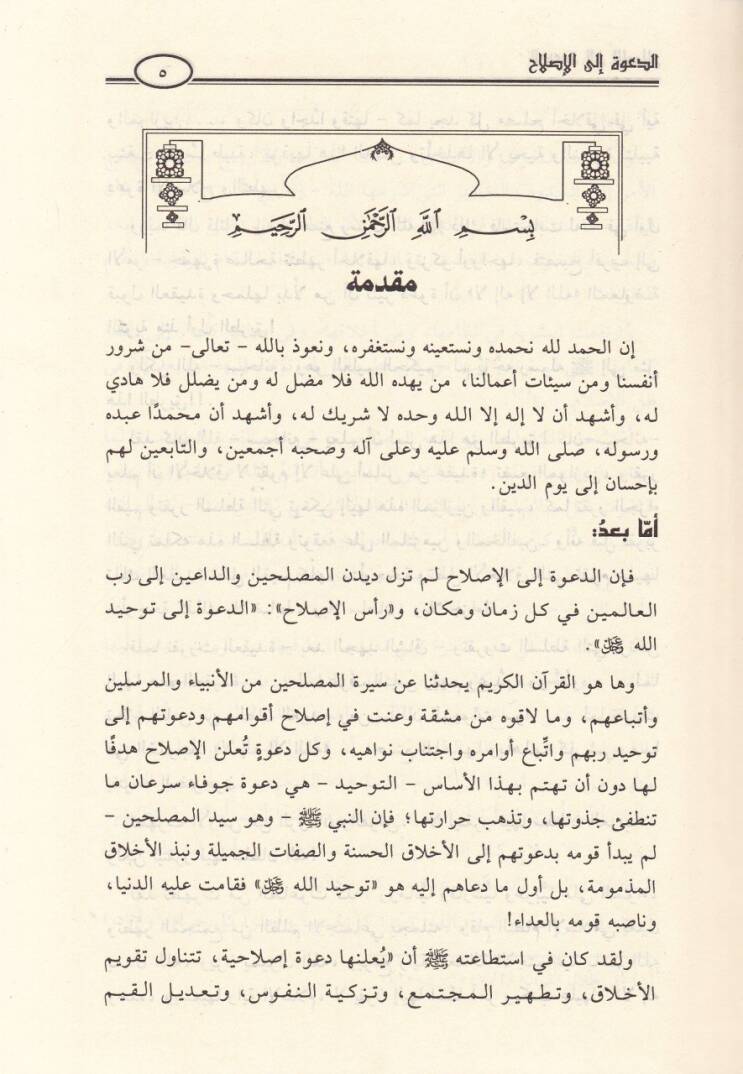 الدعوة إلى الإصلاح
٥
بسم الله الرحمن الرحيم
مقدمة
إن الحمد لله نحمده ونستعينه ونستغفره، ونعوذ بالله - تعالى- من شرور
أنفسنا ومن سيئات أعمالنا، من يهده الله فلا مضل له ومن يضلل فلا هادي
له، وأشهد أن لا إله إلا الله وحده لا شريك له، وأشهد أن محمدًا عبده
ورسوله، صلى الله وسلم عليه وعلى آله وصحبه أجمعين، والتابعين لهم
بإحسان إلى يوم الدين.
أمّا بعدُ:
فإن الدعوة إلى الإصلاح لم تزل ديدن المصلحين والداعين إلى رب
العالمين في كل زمان ومكان، و«رأس الإصلاح»: «الدعوة إلى توحيد
الله ﷻ».
وها هو القرآن الكريم يحدثنا عن سيرة المصلحين من الأنبياء والمرسلين
وأتباعهم، وما لاقوه من مشقة وعنت في إصلاح أقوامهم ودعوتهم إلى
توحيد ربهم واتِّباع أوامره واجتناب نواهيه، وكل دعوةٍ تُعلن الإصلاح هدفًا
لها دون أن تهتم بهذا الأساس - التوحيد - هي دعوة جوفاء سرعان ما
تنطفئ جذوتها، وتذهب حرارتها؛ فإن النبي ﷺ - وهو سيد المصلحين -
لم يبدأ قومه بدعوتهم إلى الأخلاق الحسنة والصفات الجميلة ونبذ الأخلاق
المذمومة، بل أول ما دعاهم إليه هو «توحيد الله ﷻ» فقامت عليه الدنيا،
وناصبه قومه بالعداء!
ولقد كان في استطاعته ﷺ أن «يُعلنها دعوة إصلاحية، تتناول تقويم
الأخلاق، وتطهير المجتمع، وتزكية النفوس، وتعديل القيم